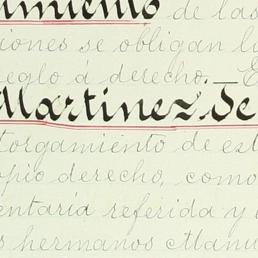 umiento de las
iones se obligan lo
reglo á derecho.— E
Martinez, Se
torgamiento de est
opio derecho, como
entaria referida y
s hermanos Manu